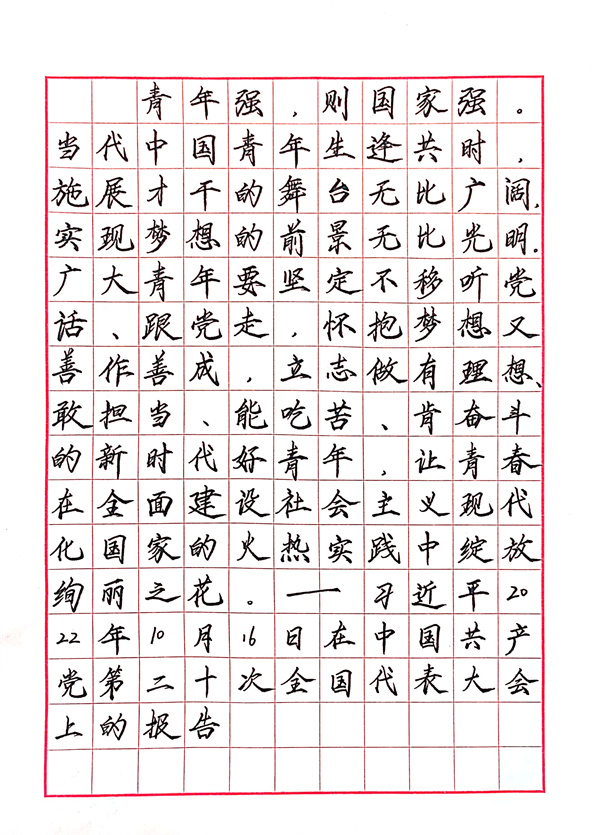 青年强，则国家强。
当代中国青年生逢其时，
施展才干的舞台无比广阔，
实现梦想的前景无比光明．
广大青年要坚定不移听党
话、跟党走，怀抱梦想又
善作善成，立志做有理想、
敢担当、能吃苦、肯奋斗
的新时代好青年，让青春
在全面建设社会主义现代
化国家的火热实践中绽放
绚丽之花。——习近平20
22年10月16日在中国共产
党第二十次全国代表大会
上的报告